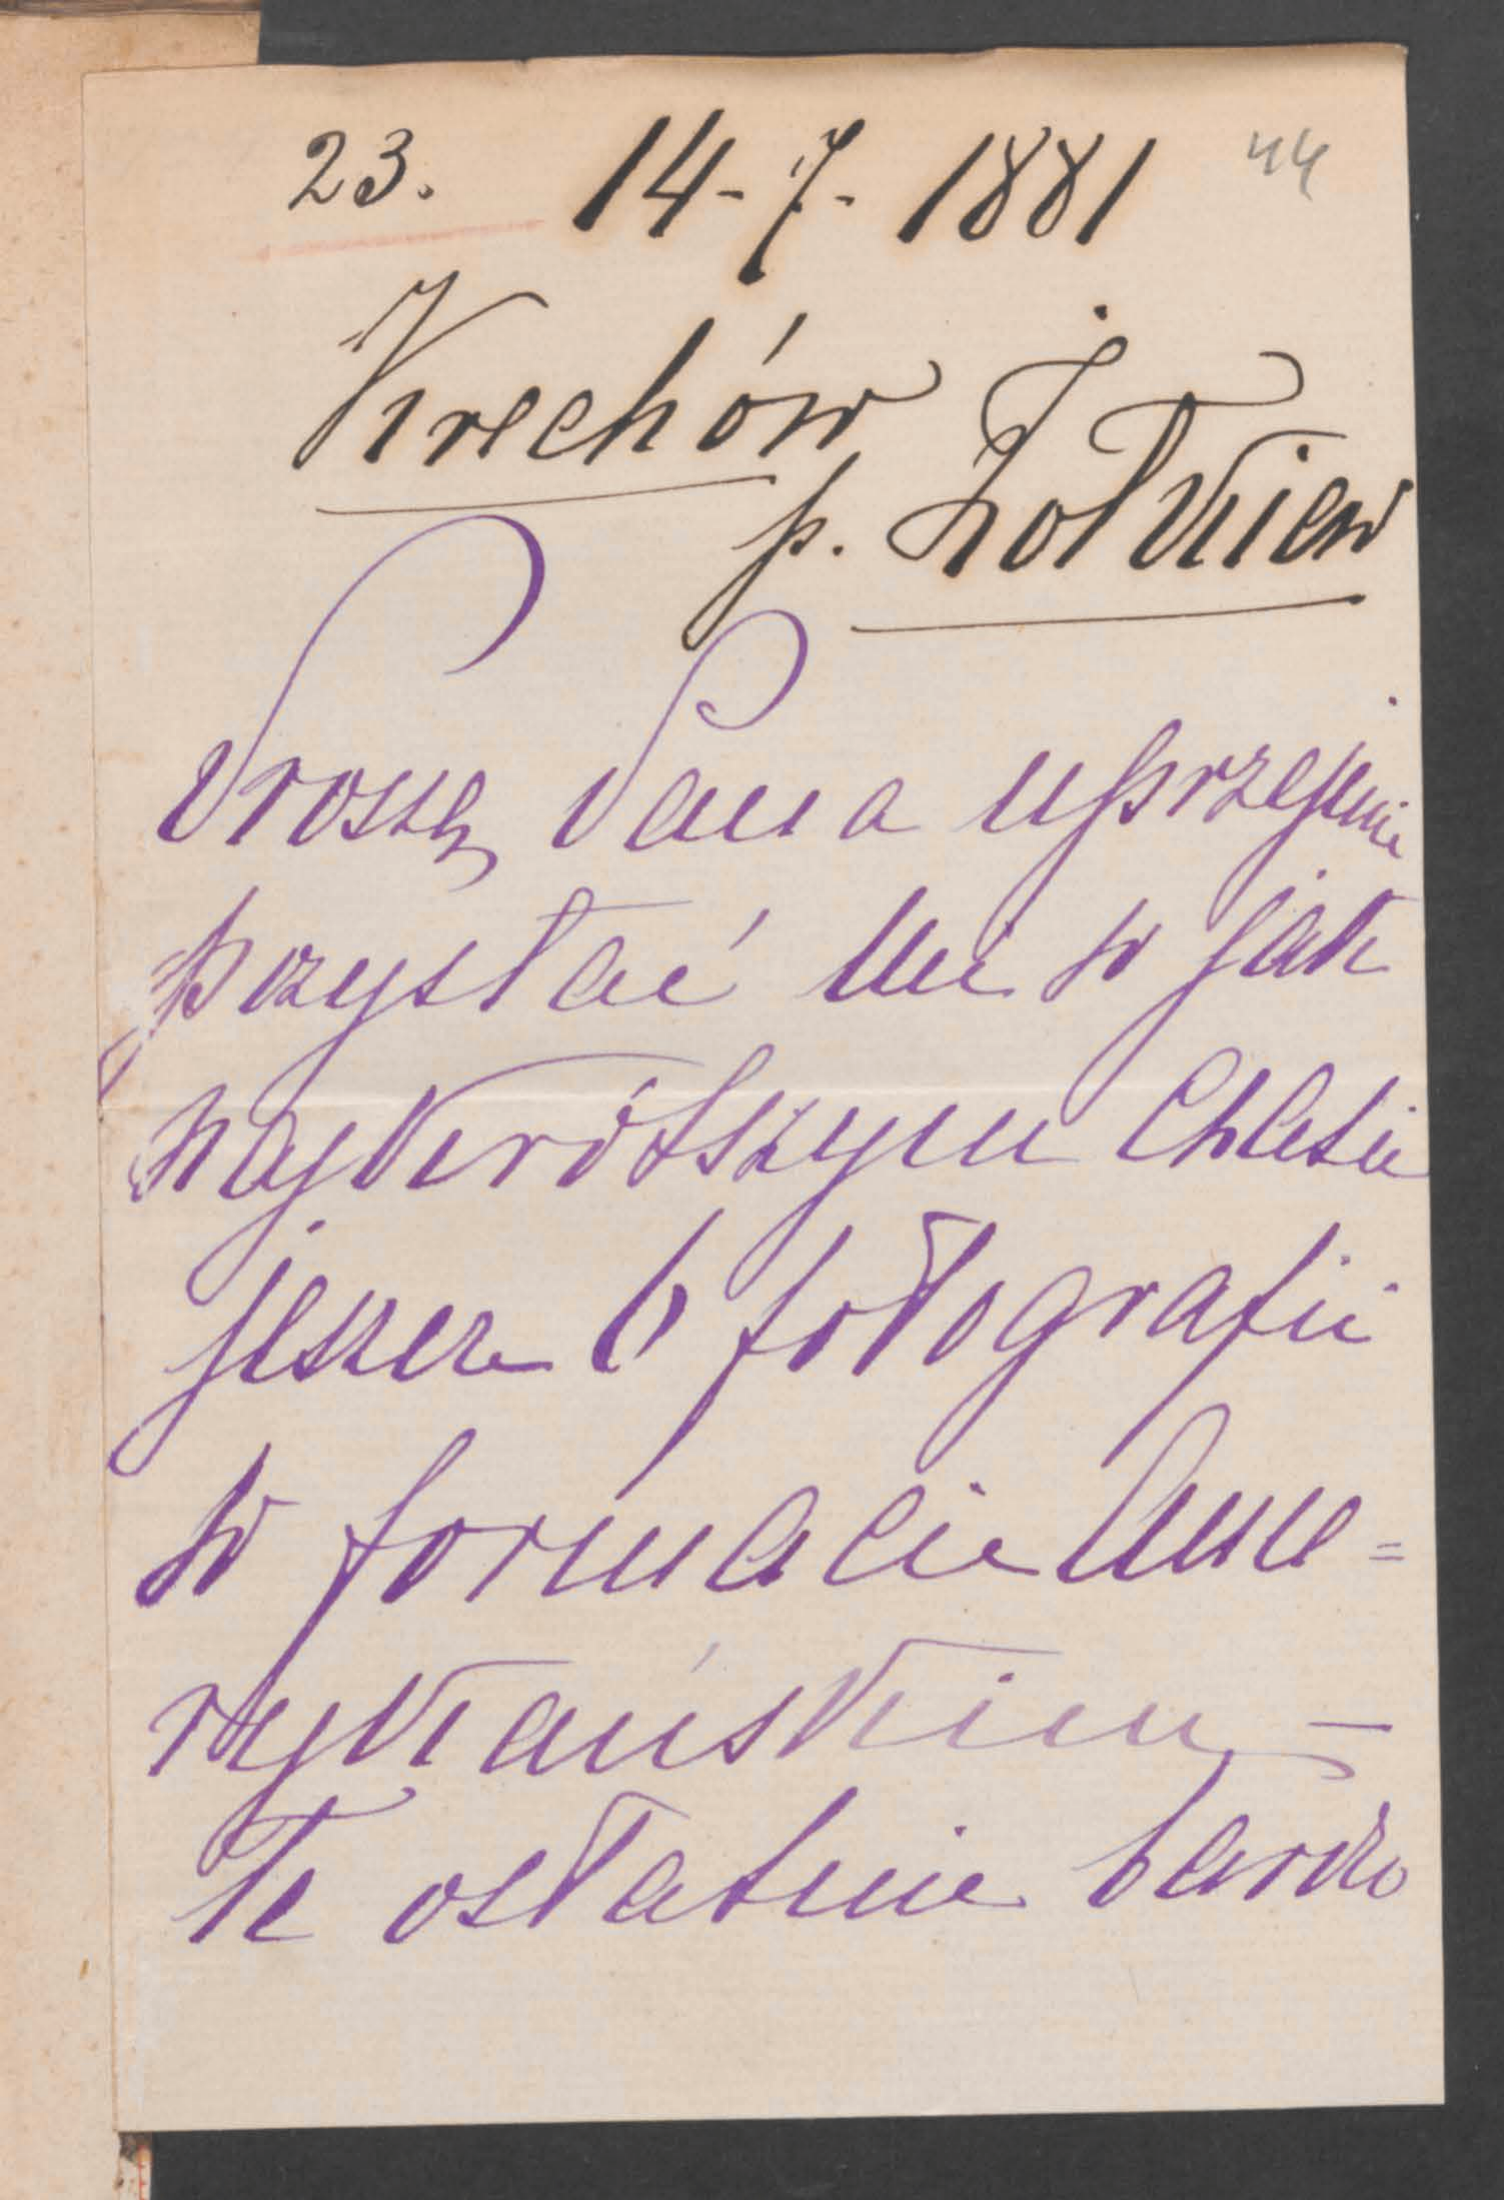 23. 14-7-1881 44
Krechów
p. Żołkiew
Proszę Pana uprzejmie
przysłać mi w jak
najkrótszym czasie
jeszcze 6 fotografii
w formacie Ame=
rykańskim —
te ostatnie bardzo